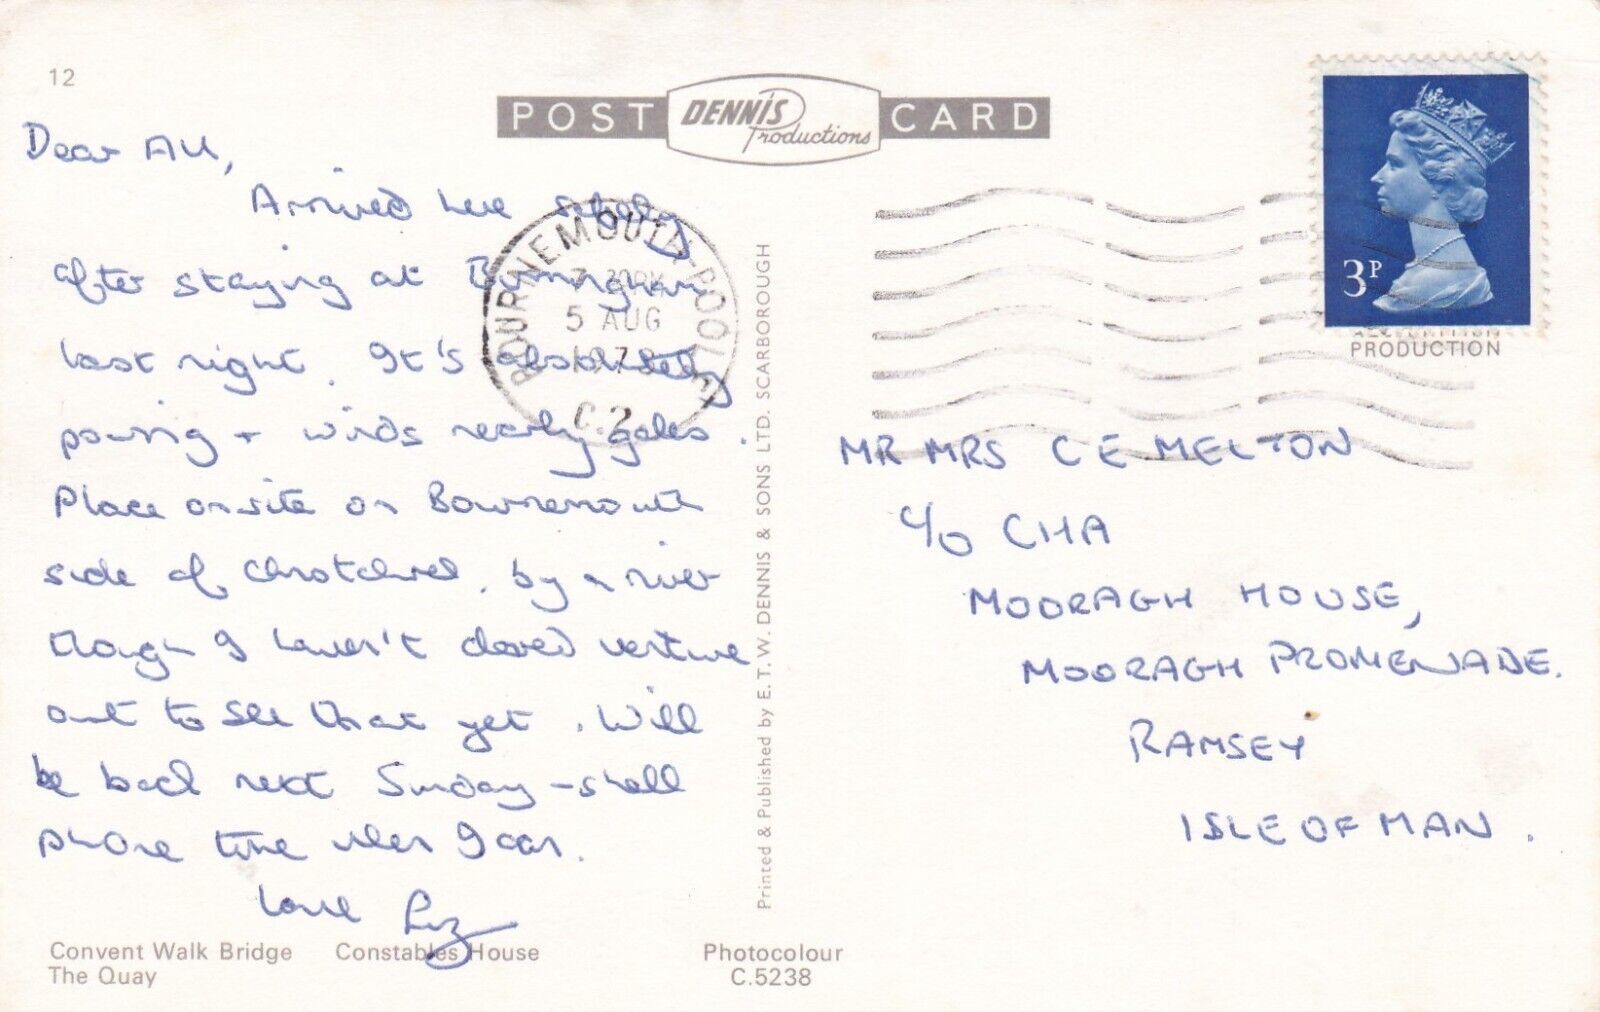 12
POST DENNIS Productions CARD
Dear All,
Arrived here safely
after staying at Birmingham
last night. It's absolutely
pouring + winds nearly gales.
Place onsite on Bournemouth
side of Christchurch, by a river
though I haven't dared venture
out to see that yet. Will
be back next Sunday - shall
phone time when I can.
Love Liz
Convent Walk Bridge Constables House
The Quay
Photocolour
C.5238
Printed & Published by E. T. W. DENNIS & SONS LTD. SCARBOROUGH
BOURNEMOUTH-POOLE
5 AUG
C.2
3P
PRODUCTION
MR MRS C E MELTON
C/O CHA
MOORAGH HOUSE,
MOORAGH PROMENADE.
RAMSEY
ISLE OF MAN.